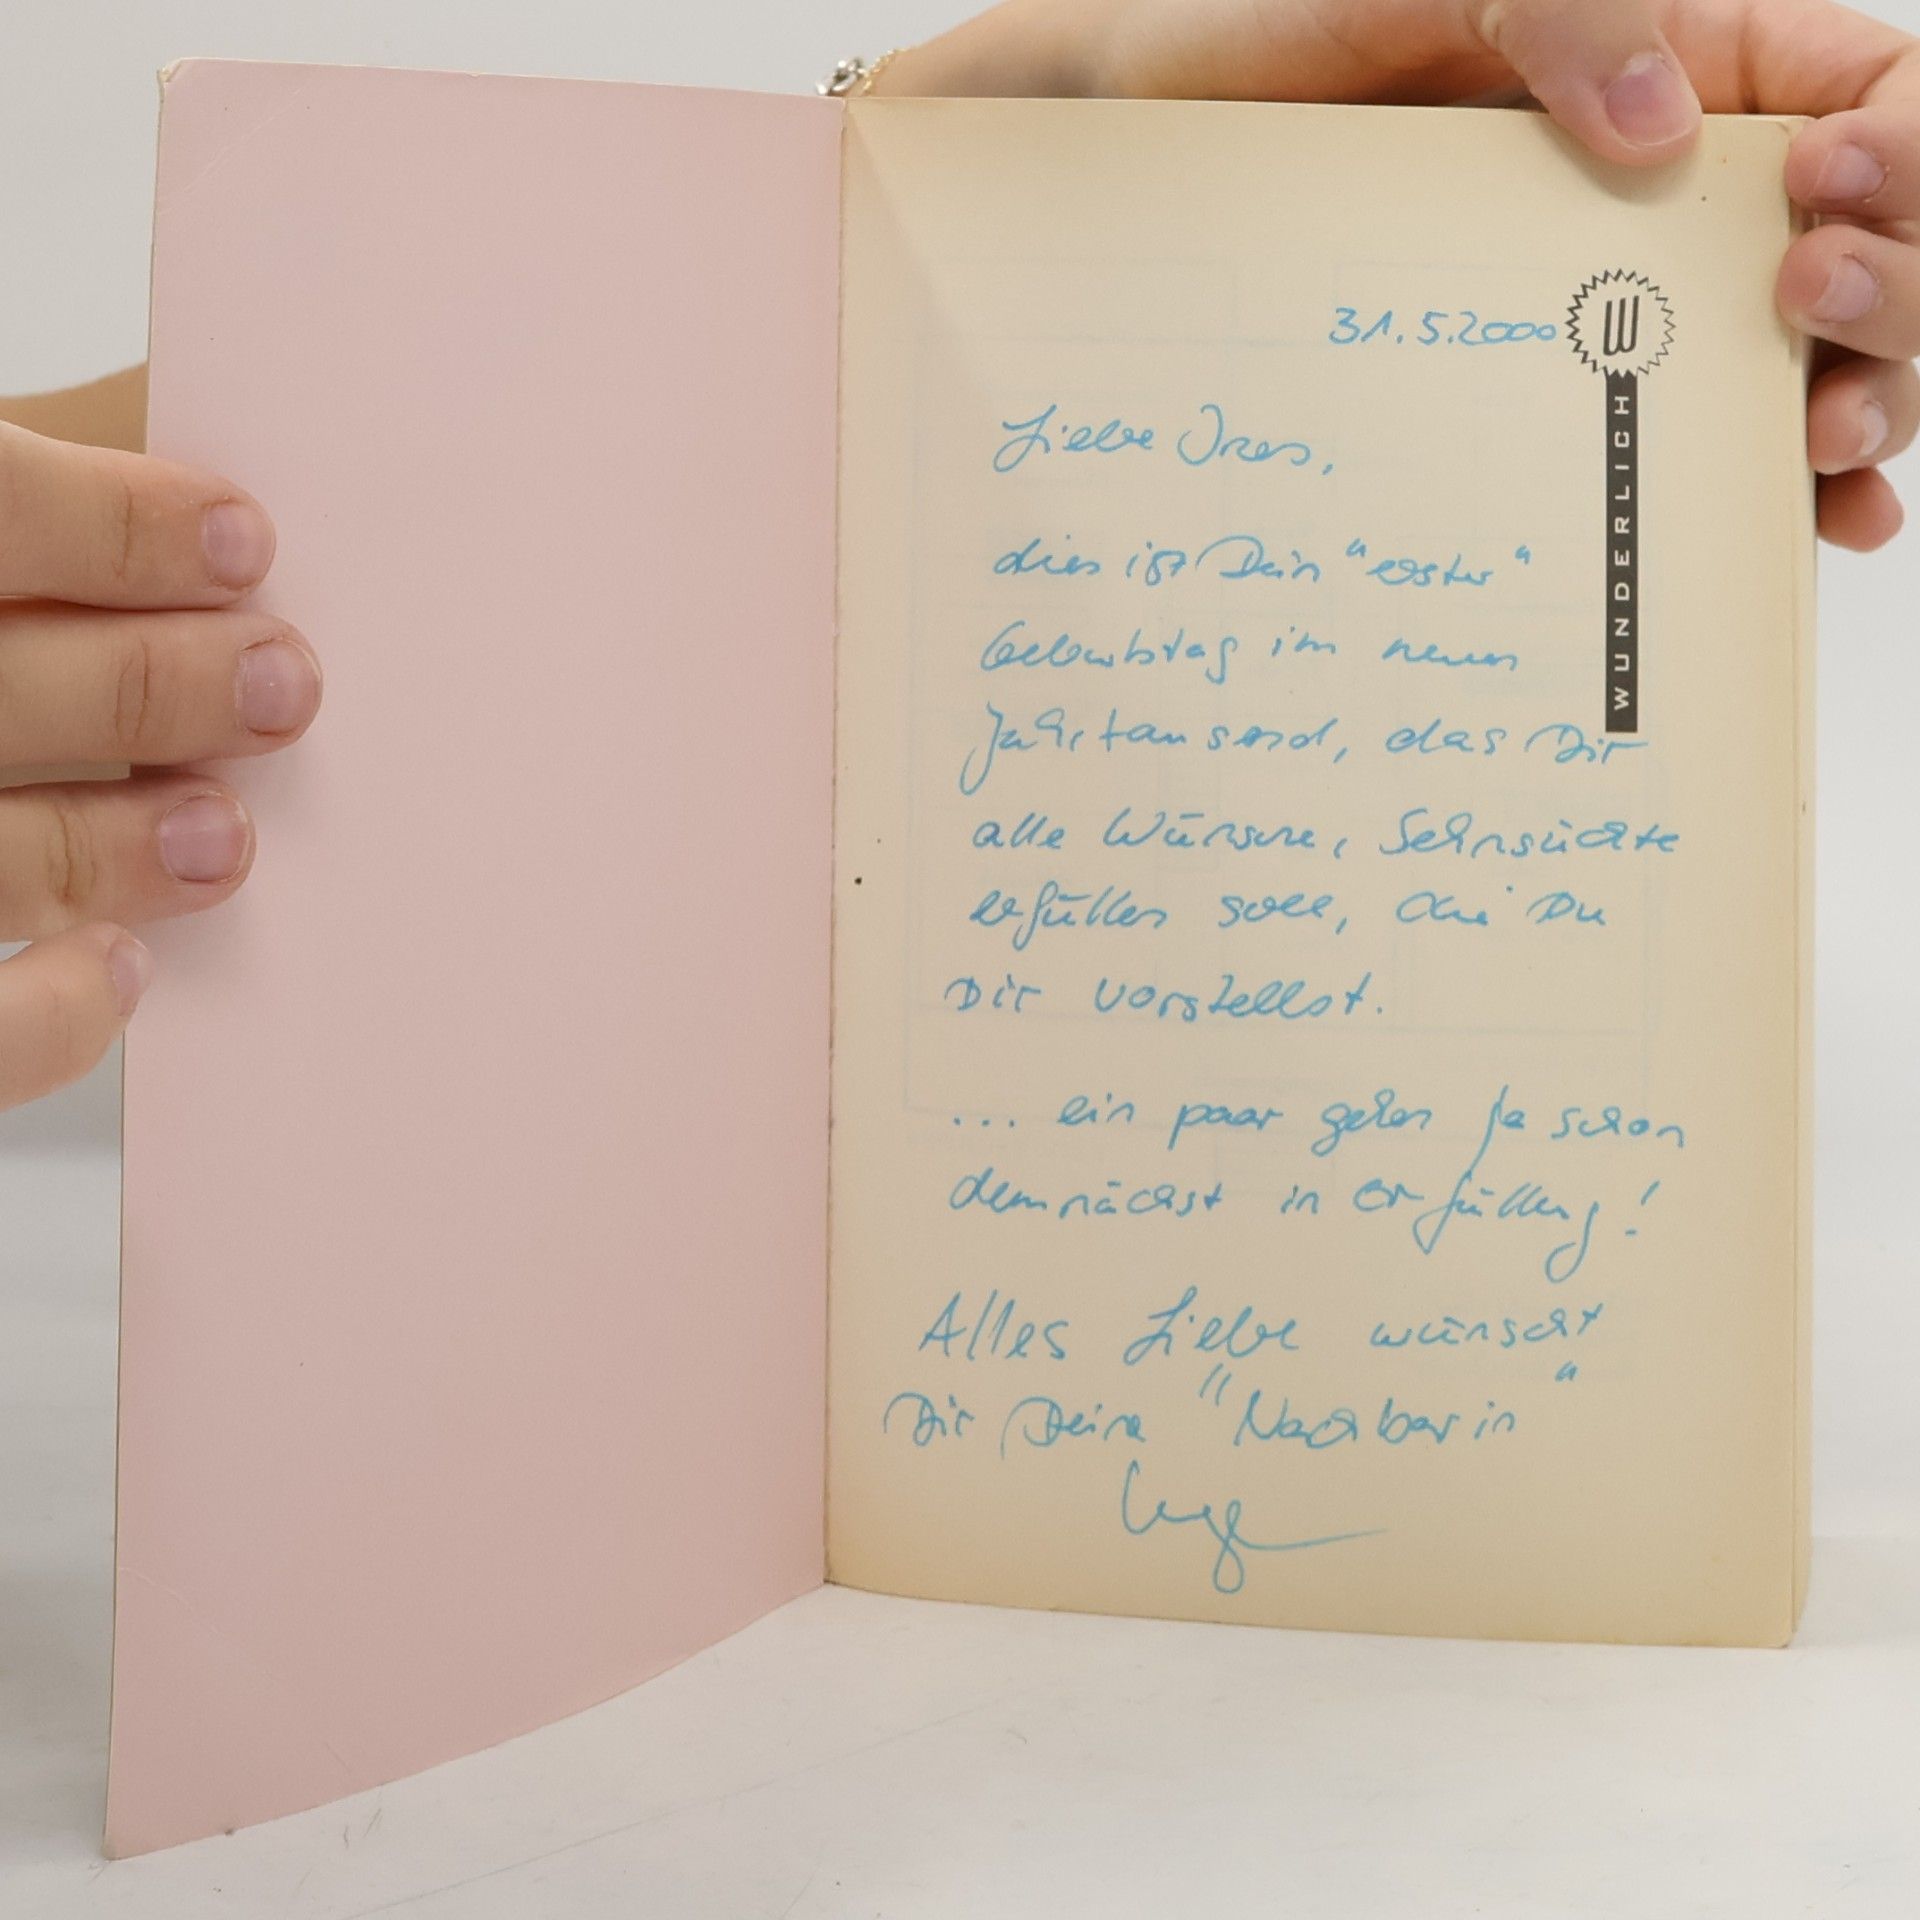 31.5.2000
W
WUNDERLICH
Liebe Ines,
dies ist Dein "erster"
Geburtstag im neuen
Jahrtausend, das Dir
alle Wünsche, Sehnsüchte
erfüllen soll, die Du
Dir vorstellst.
... ein paar gehen ja schon
demnächst in Erfüllung!
Alles Liebe wünscht
Dir Deine "Nachbarin"